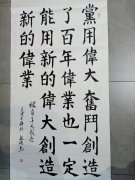 黨用偉大奮鬥創造
了百年偉業也一定
能用新的偉大創造
新的偉業